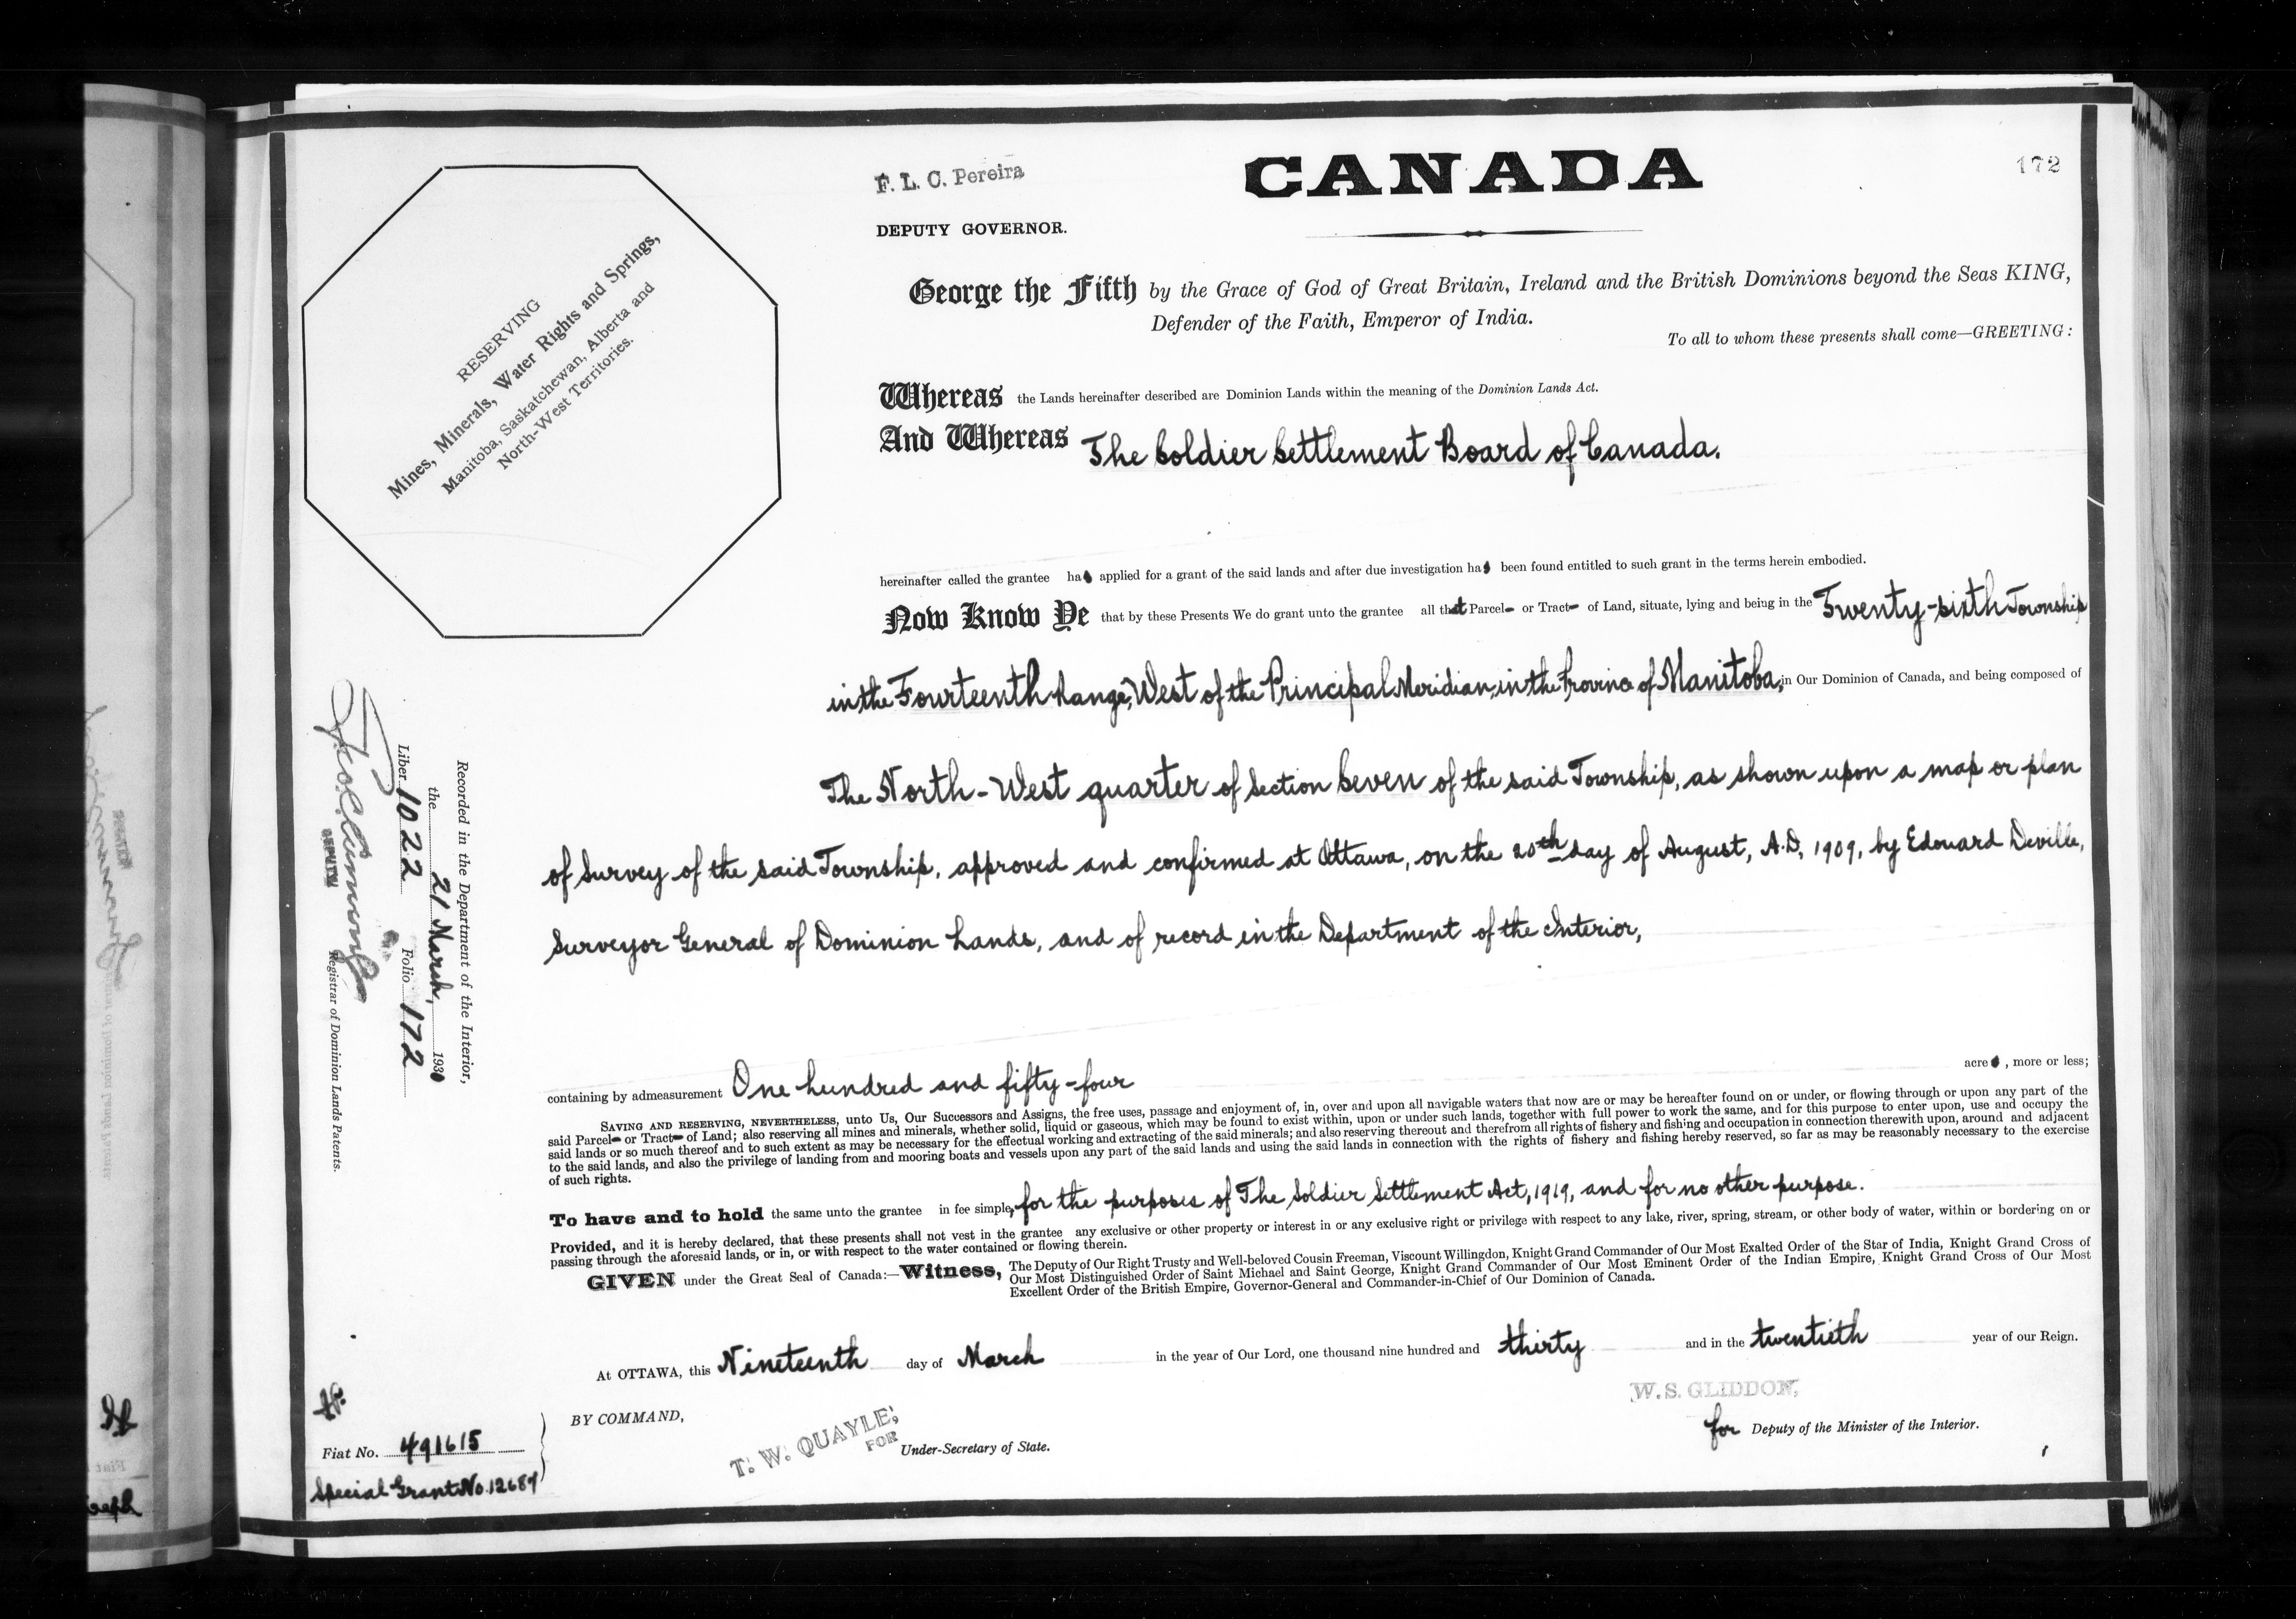 172
F. L. C. Pereira
CANADA
DEPUTY GOVERNOR.
George the Fifth by the Grace of God of Great Britain, Ireland and the British Dominions beyond the Seas KING,
Defender of the Faith, Emperor of India.
To all to whom these presents shall come—GREETING:
RESERVING
Mines, Minerals, Water Rights and Springs,
Manitoba, Saskatchewan, Alberta and
North-West Territories.
Whereas the Lands hereinafter described are Dominion Lands within the meaning of the Dominion Lands Act.
And Whereas The Soldier Settlement Board of Canada.
hereinafter called the grantee has applied for a grant of the said lands and after due investigation has been found entitled to such grant in the terms herein embodied.
Now Know Ye that by these Presents We do grant unto the grantee all that Parcel or Tract of Land, situate, lying and being in the Twenty-sixth Township
in the Fourteenth Range, West of the Principal Meridian, in the Province of Manitoba, in Our Dominion of Canada, and being composed of
The North-West quarter of Section Seven of the said Township, as shown upon a map or plan
of Survey of the said Township, approved and confirmed at Ottawa, on the 20th day of August, A.D. 1909, by Edouard Deville,
Surveyor General of Dominion Lands, and of record in the Department of the Interior,
containing by admeasurement One hundred and fifty-four acres, more or less;
SAVING AND RESERVING, NEVERTHELESS, unto Us, Our Successors and Assigns, the free uses, passage and enjoyment of, in, over and upon all navigable waters that now are or may be hereafter found on or under, or flowing through or upon any part of the
said Parcel or Tract of Land; also reserving all mines and minerals, whether solid, liquid or gaseous, which may be found to exist within, upon or under such lands, together with full power to work the same, and for this purpose to enter upon, use and occupy the
said lands or so much thereof and to such extent as may be necessary for the effectual working and extracting of the said minerals; and also reserving thereout and therefrom all rights of fishery and fishing and occupation in connection therewith upon, around and adjacent
to the said lands, and also the privilege of landing from and mooring boats and vessels upon any part of the said lands and using the said lands in connection with the rights of fishery and fishing hereby reserved, so far as may be reasonably necessary to the exercise
of such rights.
To have and to hold the same unto the grantee in fee simple, for the purposes of The Soldier Settlement Act, 1919, and for no other purpose.
Provided, and it is hereby declared, that these presents shall not vest in the grantee any exclusive or other property or interest in or any exclusive right or privilege with respect to any lake, river, spring, stream, or other body of water, within or bordering on or
passing through the aforesaid lands, or in, or with respect to the water contained or flowing therein.
GIVEN under the Great Seal of Canada:—Witness, The Deputy of Our Right Trusty and Well-beloved Cousin Freeman, Viscount Willingdon, Knight Grand Commander of Our Most Exalted Order of the Star of India, Knight Grand Cross of
Our Most Distinguished Order of Saint Michael and Saint George, Knight Grand Commander of Our Most Eminent Order of the Indian Empire, Knight Grand Cross of Our Most
Excellent Order of the British Empire, Governor-General and Commander-in-Chief of Our Dominion of Canada.
At OTTAWA, this Nineteenth day of March in the year of Our Lord, one thousand nine hundred and thirty and in the twentieth year of our Reign.
BY COMMAND,
T. W. QUAYLE,
FOR
Under-Secretary of State.
W. S. GLIDDON,
for Deputy of the Minister of the Interior.
Recorded in the Department of the Interior,
the 21 March, 1930
Liber 1022 Folio 172
DEPUTY
Registrar of Dominion Lands Patents.
Fiat No. 491615
Special Grant No. 12687